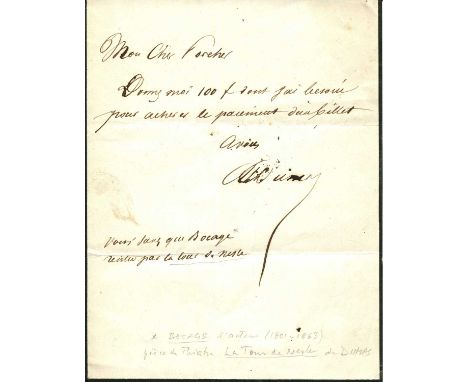 Mon Cher Porcher
Donnez moi 100 f dont j'ai besoin
pour achever le paiement d'un billet
A vous
Al Dumas
vous savez que Bocage
rentre par la tour de Nesle
* BOCAGE acteur (1801-1863)
pièce de théâtre La Tour de Nesle de DUMAS